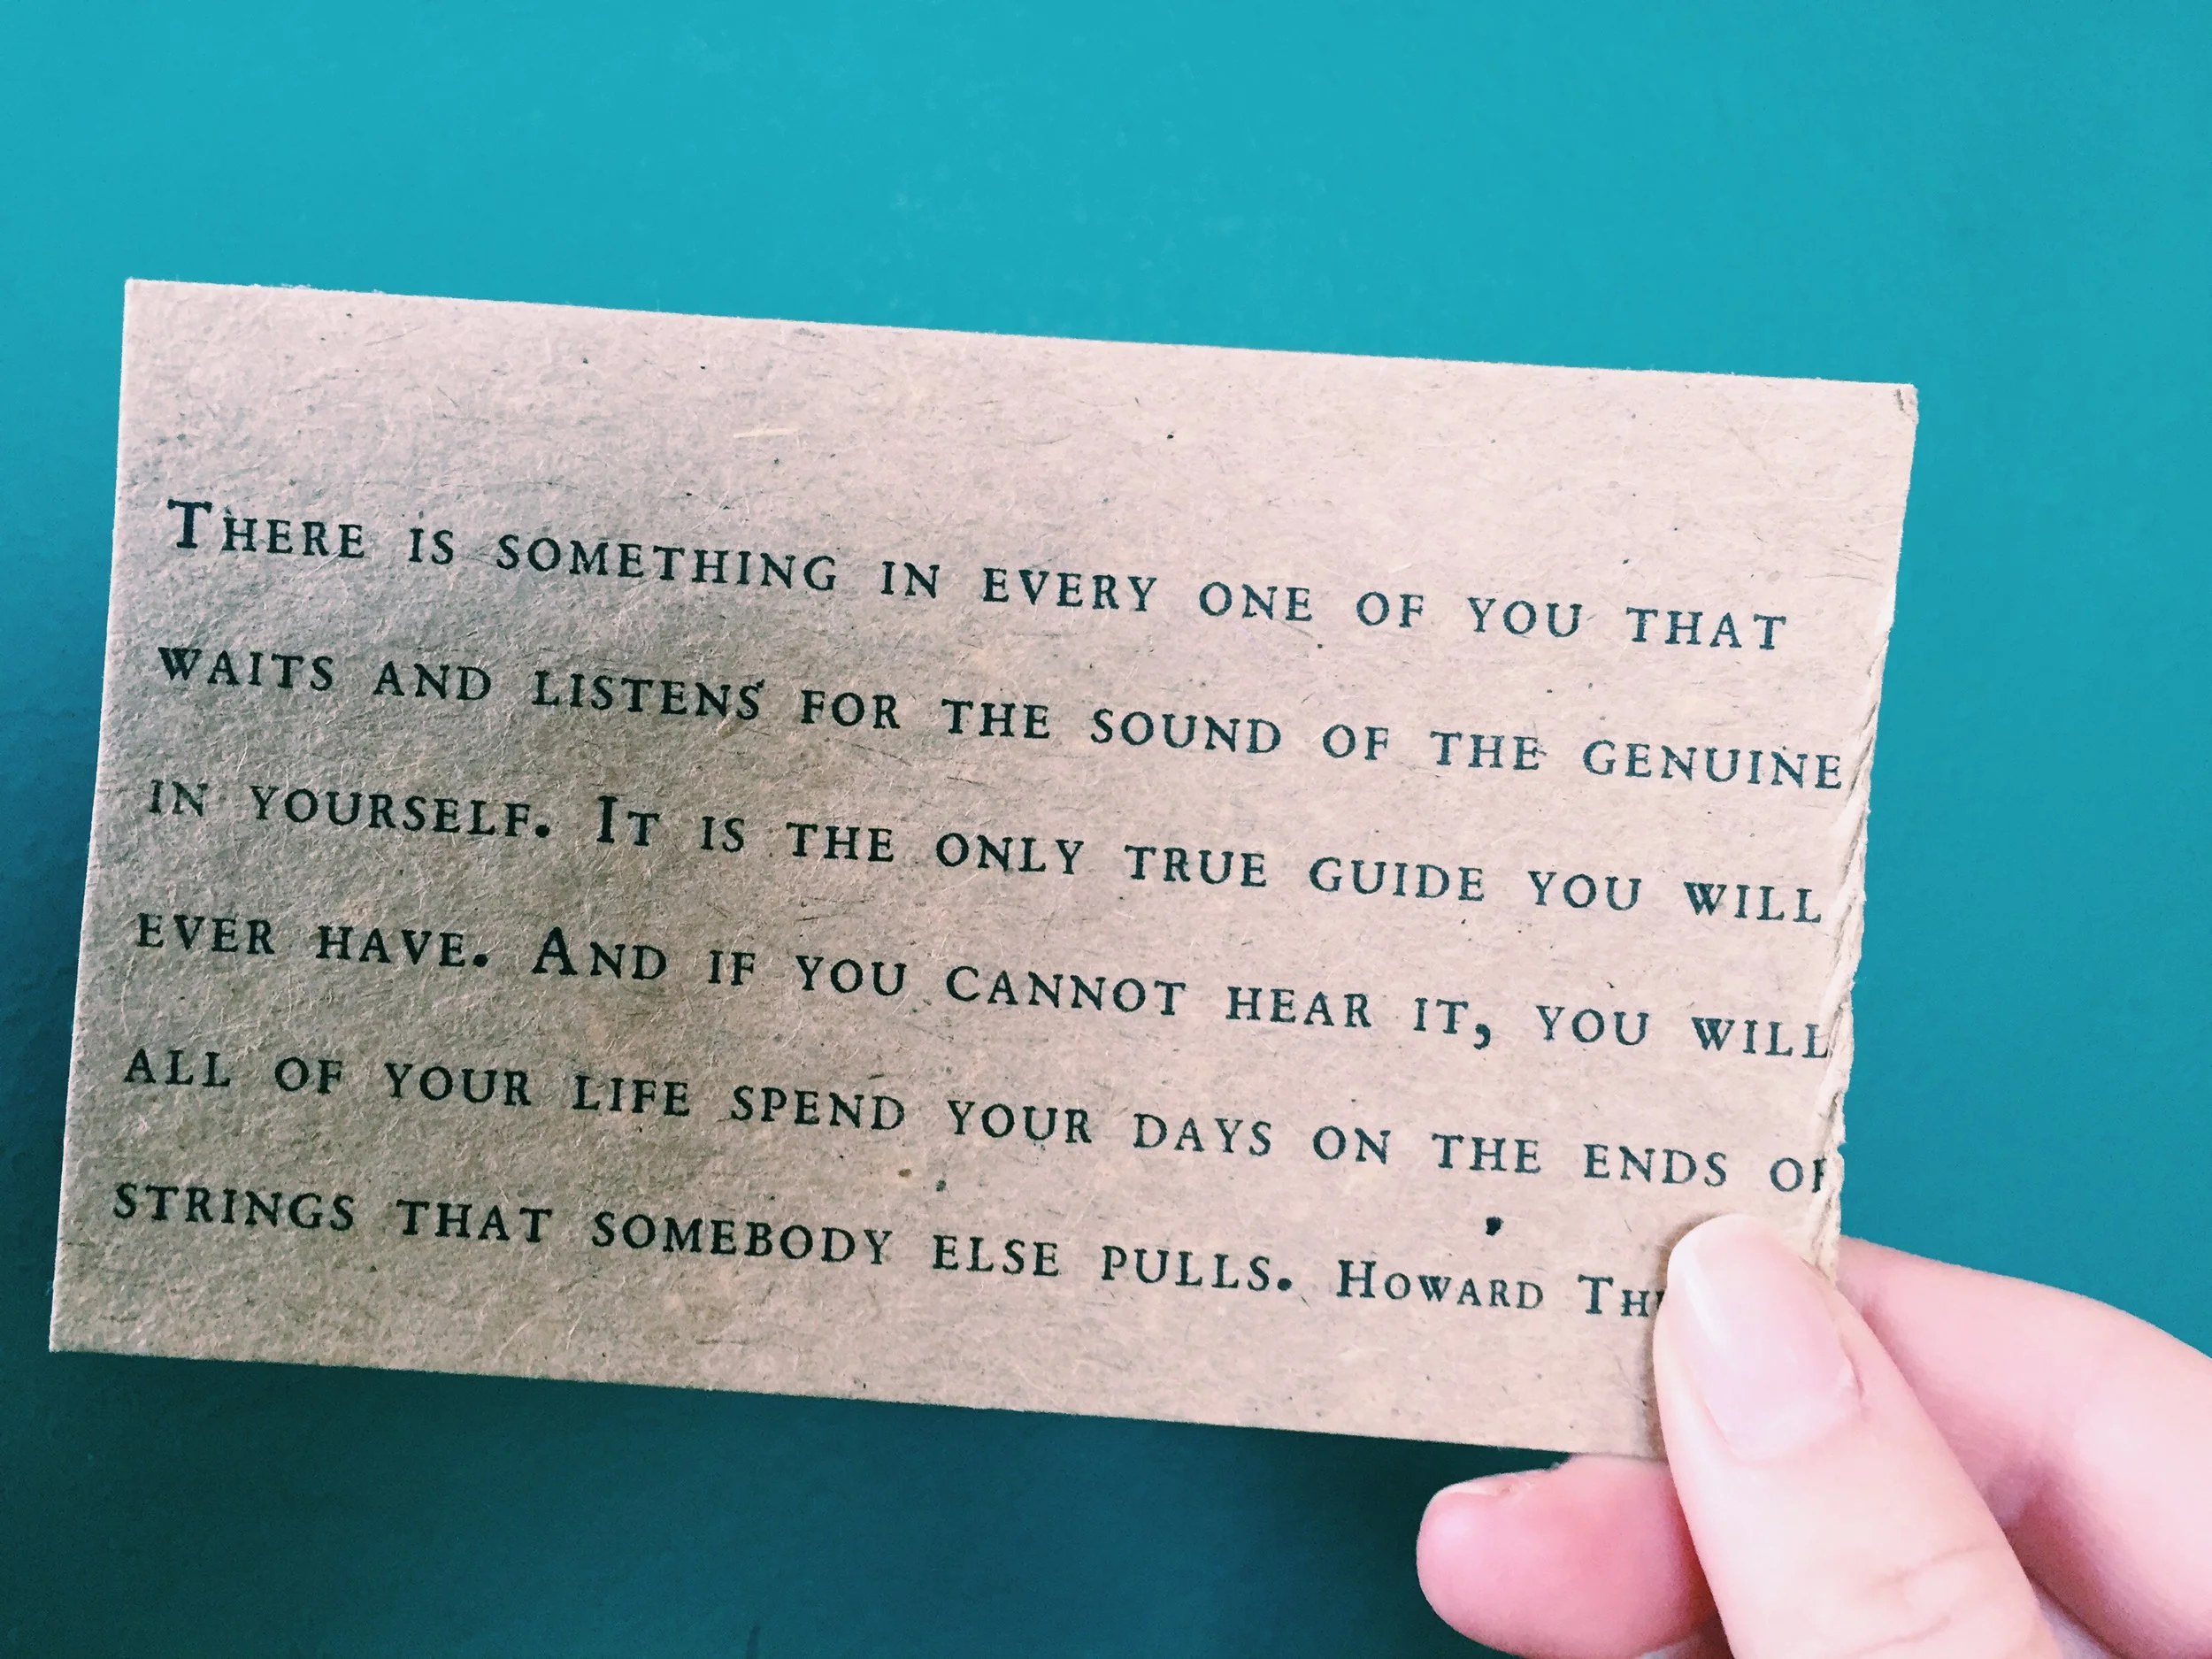 There is something in every one of you that
waits and listens for the sound of the genuine
in yourself. It is the only true guide you will
ever have. And if you cannot hear it, you will
all of your life spend your days on the ends of
strings that somebody else pulls. Howard